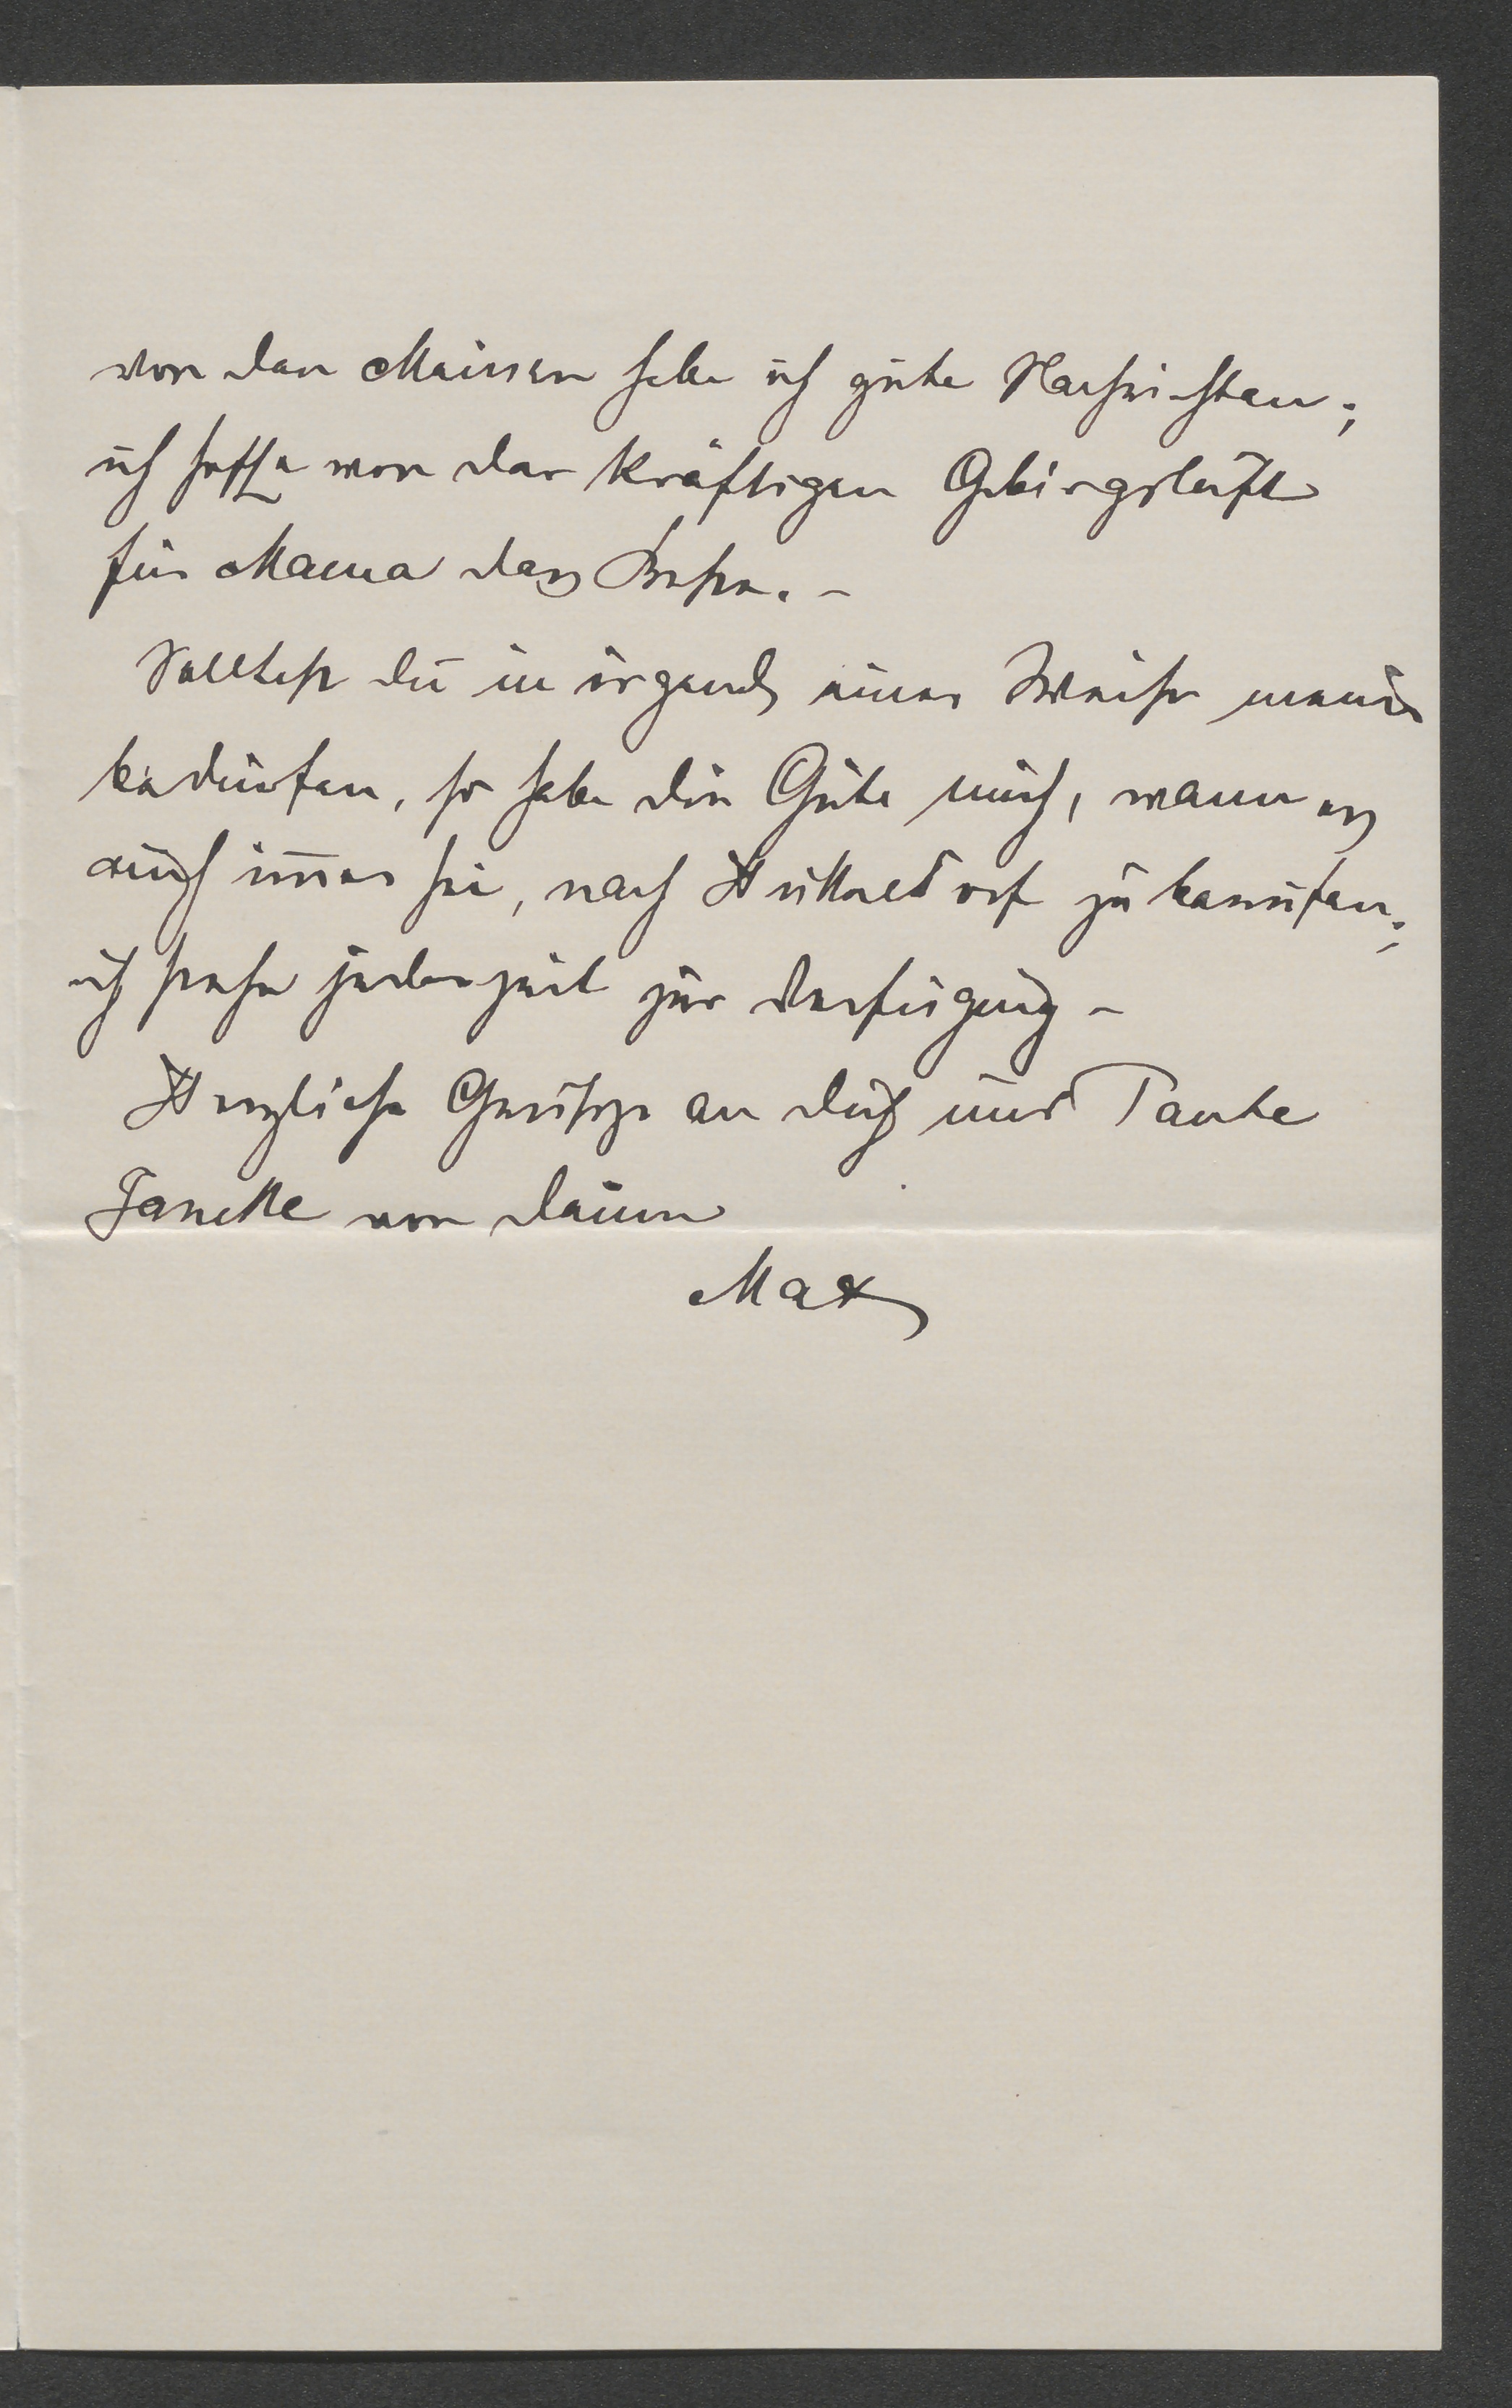 Von den Meinen habe ich gute Nachrichten;
ich hoffe von der kräftigen Gebirgsluft
für Mama das Beste. –
Solltest Du in irgend einer Weise meiner
bedürfen, so habe die Güte mich, wann es
auch im̅er sei, nach Hütteldorf zu berufen;
ich stehe jederzeit zur Verfügung –
Herzliche Grüsse an Dich und Tante
Janette von Deinem
Max